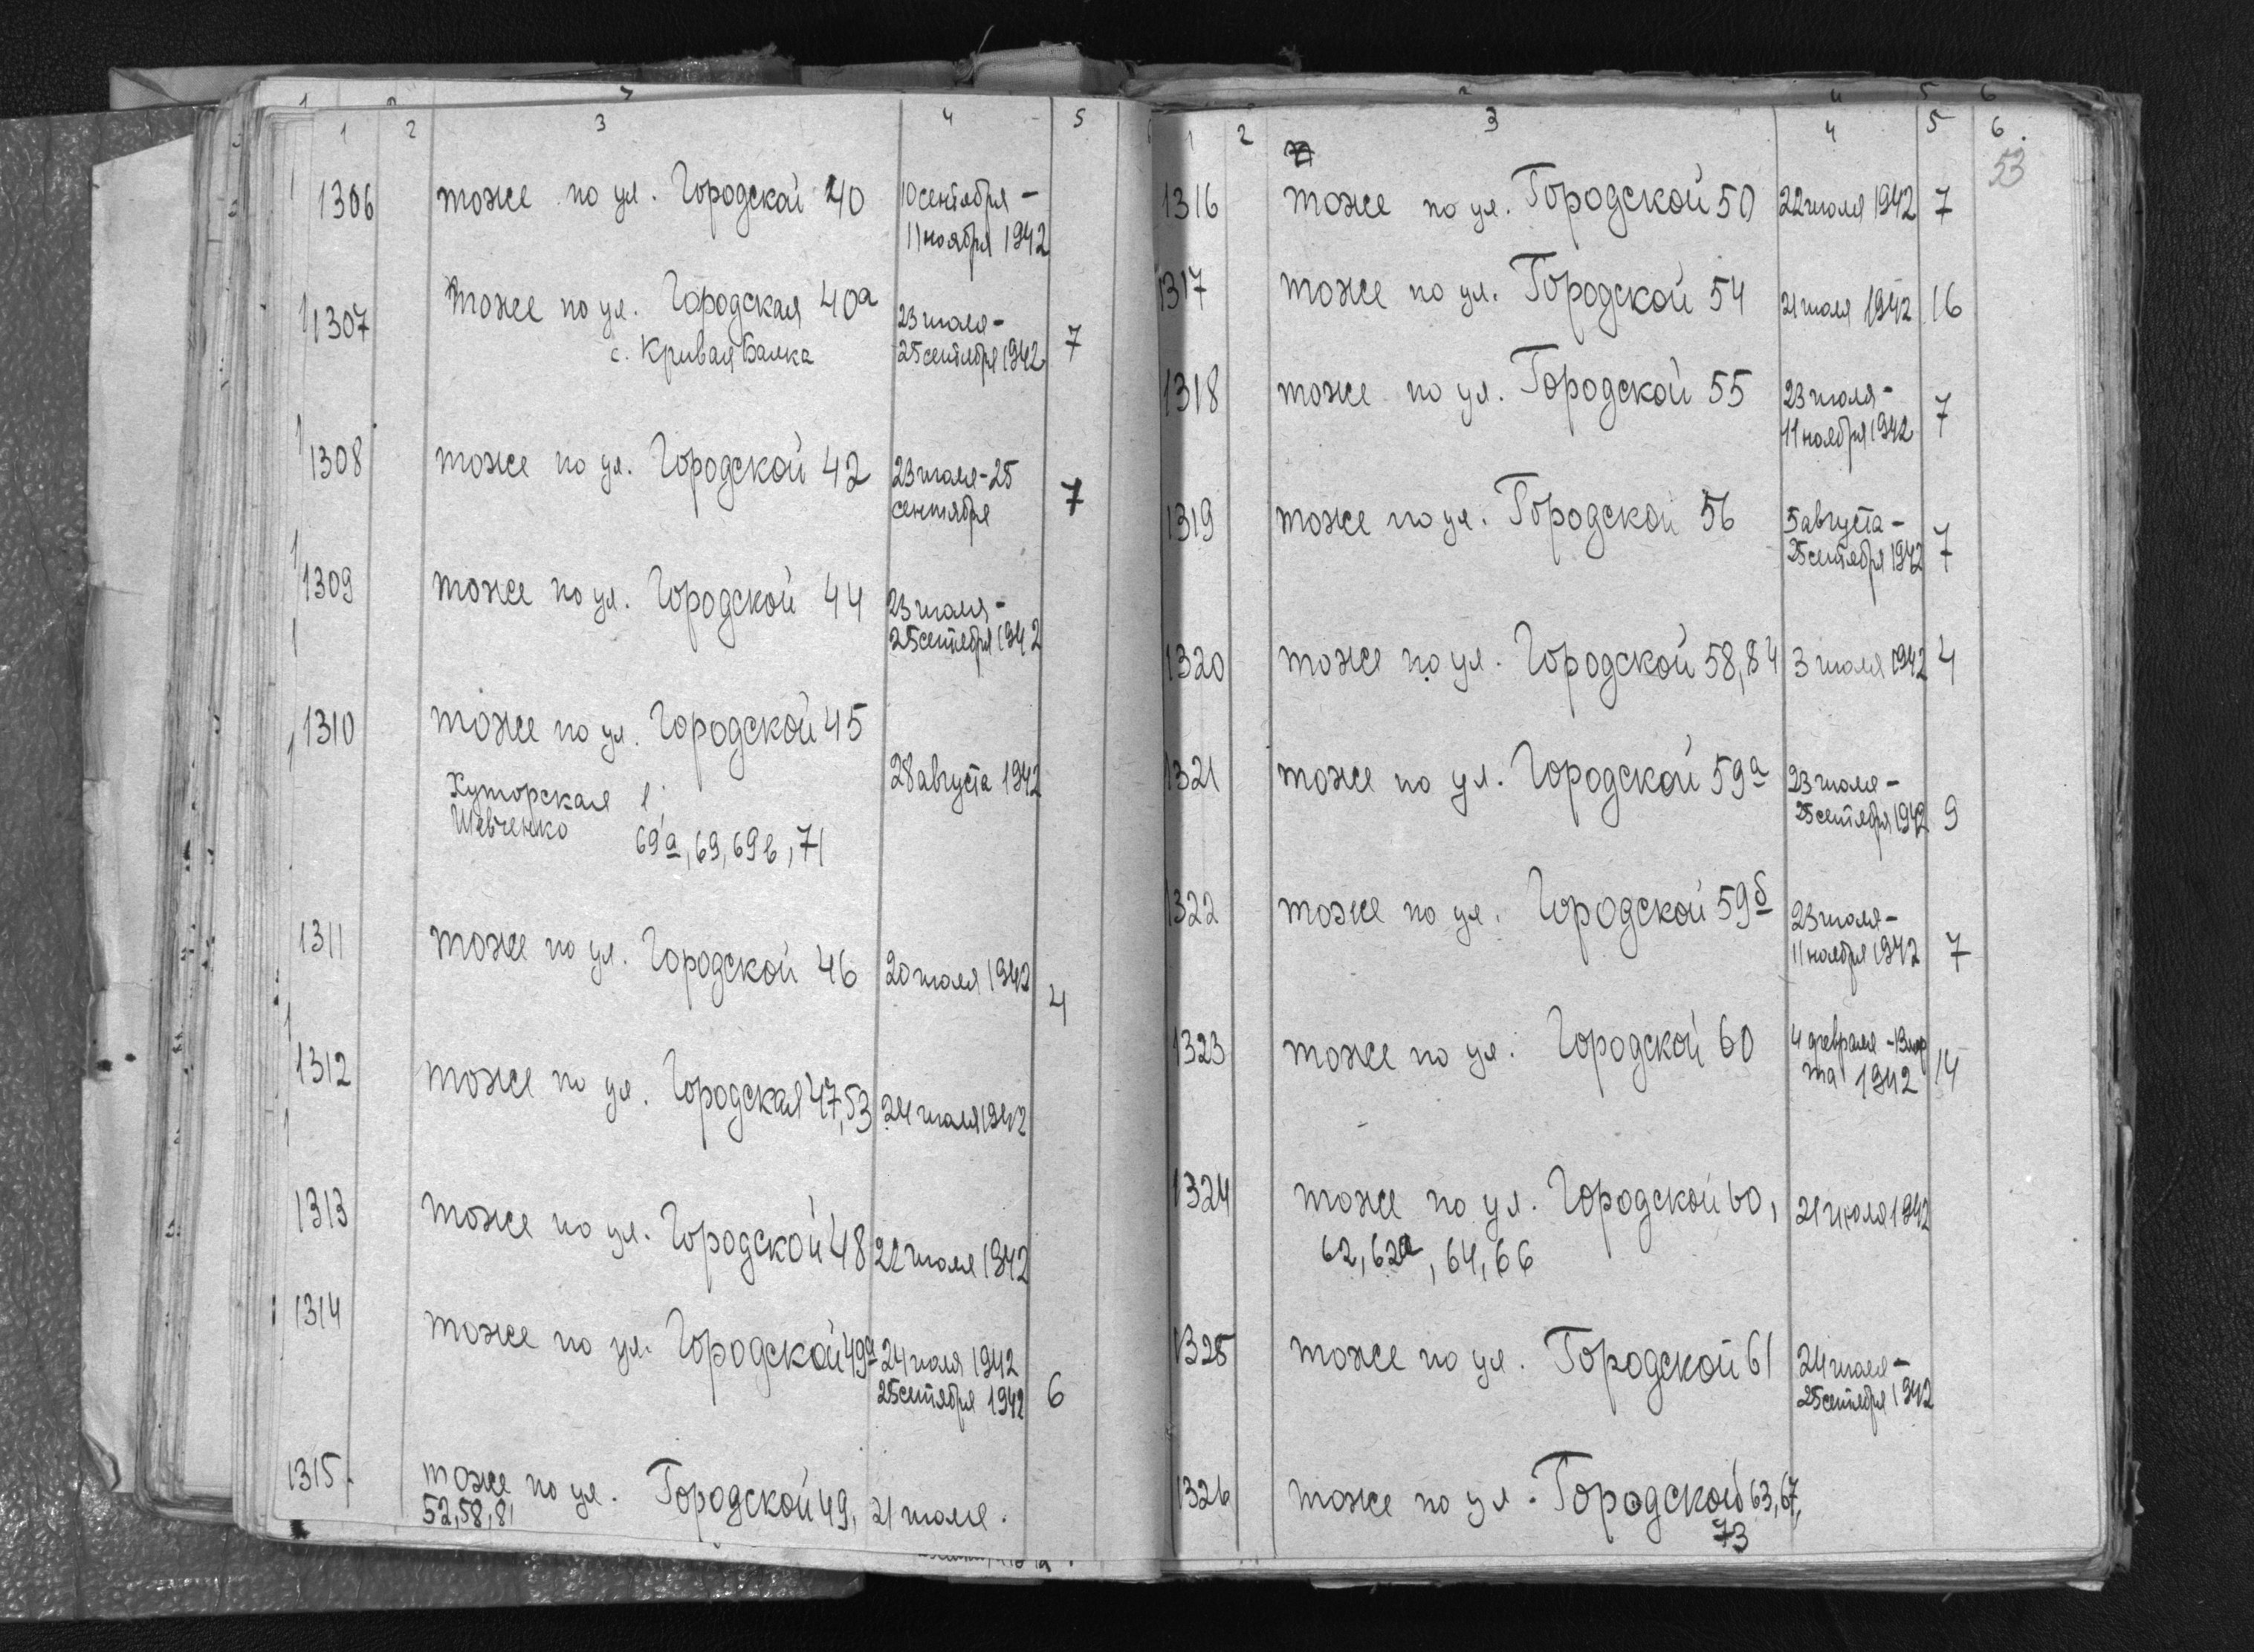 1 2 3 4 5
1306 тоже по ул. Городской 40 10 сентября -
11 ноября 1942
1307 тоже по ул. Городская 40а 23 июля -
с. Кривая Балка 25 сентября 1942 7
1308 тоже по ул. Городской 42 23 июля - 25
сентября 7
1309 тоже по ул. Городской 44 23 июля -
25 сентября 1942
1310 тоже по ул. Городской 45
28 августа 1942
Хуторская 1
Шевченко
69а, 69, 69в, 71
1311 тоже по ул. Городской 46 20 июля 1942 4
1312 тоже по ул. Городская 47, 53 24 июля 1942
1313 тоже по ул. Городской 48 22 июля 1942
1314 тоже по ул. Городской 49а 24 июля 1942
25 сентября 1942 6
1315. тоже по ул. Городской 49, 21 июля.
52, 58, 81
1 2 3 4 5 6.
53
1316 тоже по ул. Городской 50 22 июля 1942 7
1317 тоже по ул. Городской 54 21 июля 1942 16
1318 тоже по ул. Городской 55 23 июля -
11 ноября 1942 7
1319 тоже по ул. Городской 56 5 августа -
25 сентября 1942 7
1320 тоже по ул. Городской 58, 84 3 июля 1942 4
1321 тоже по ул. Городской 59а 23 июля -
25 сентября 1942 9
1322 тоже по ул. Городской 59б 23 июля -
11 ноября 1942 7
1323 тоже по ул. Городской 60 4 февраля - 13 мар
та 1942 14
1324 тоже по ул. Городской 60, 21 июля 1942
62, 62а, 64, 66
1325 тоже по ул. Городской 61 24 июля -
25 сентября 1942
1326 тоже по ул. Городской 63, 67,
73